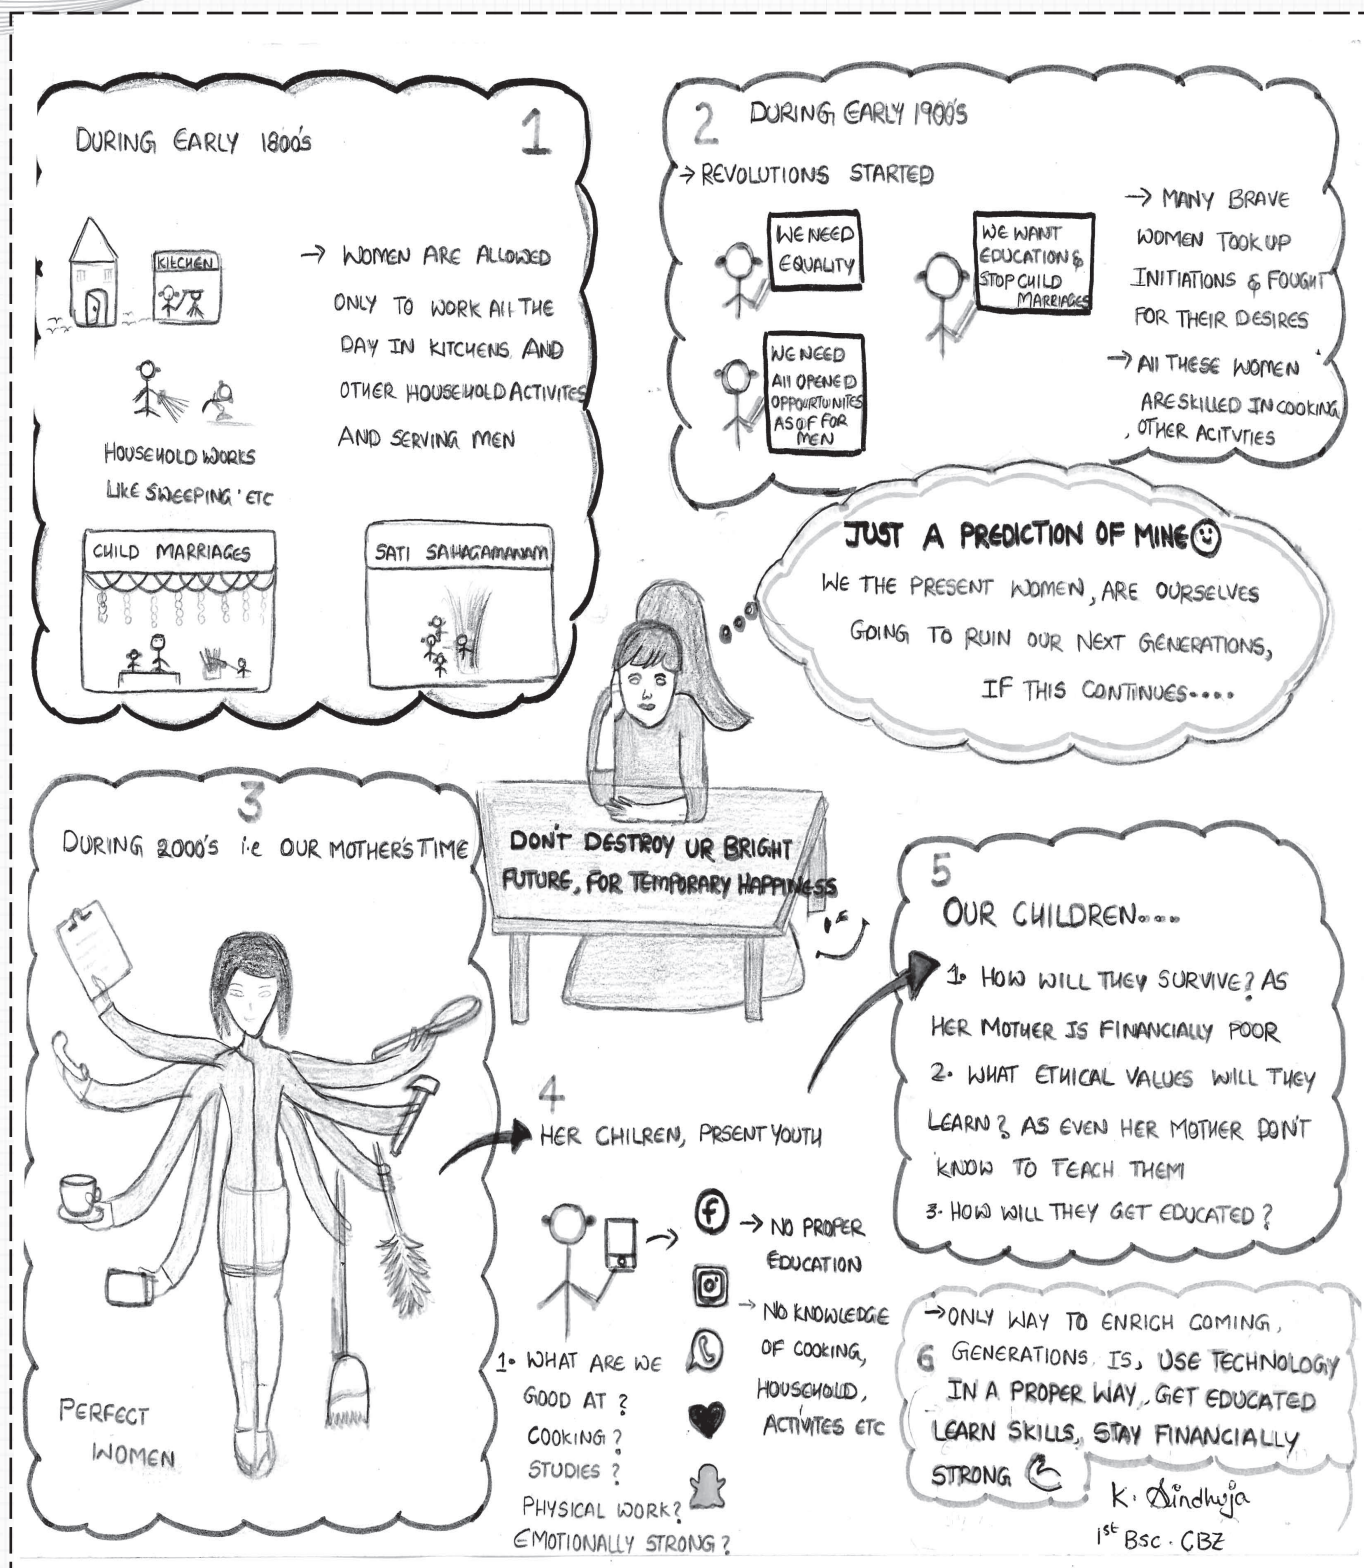 DURING EARLY 1800'S
1
KITCHEN
→ WOMEN ARE ALLOWED
ONLY TO WORK All THE
DAY IN KITCHENS AND
OTHER HOUSEHOLD ACTIVITES
AND SERVING MEN
HOUSEHOLD WORKS
LIKE SWEEPING' ETC
CHILD MARRIAGES
SATI SAHAGAMANAM
2
DURING EARLY 1900'S
→ REVOLUTIONS STARTED
WE NEED
EQUALITY
WE WANT
EDUCATION &
STOP CHILD
MARRIAGES
WE NEED
All OPENED
OPPOURTUNITES
AS OF FOR
MEN
→ MANY BRAVE
WOMEN TOOK UP
INITIATIONS & FOUGHT
FOR THEIR DESIRES
→ All THESE WOMEN
ARE SKILLED IN COOKING
, OTHER ACITVTIES
JUST A PREDICTION OF MINE
WE THE PRESENT WOMEN, ARE OURSELVES
GOING TO RUIN OUR NEXT GENERATIONS,
IF THIS CONTINUES....
3
DURING 2000'S i.e OUR MOTHER'S TIME
PERFECT
WOMEN
DON'T DESTROY UR BRIGHT
FUTURE, FOR TEMPORARY HAPPINESS
4
HER CHILREN, PRSENT YOUTH
f
→ NO PROPER
EDUCATION
→ NO KNOWLEDGE
OF COOKING,
HOUSEHOLD,
ACTIVITES ETC
1. WHAT ARE WE
GOOD AT ?
COOKING ?
STUDIES ?
PHYSICAL WORK?
EMOTIONALLY STRONG ?
5
OUR CHILDREN...
1. HOW WILL THEY SURVIVE? AS
HER MOTHER IS FINANCIALLY POOR
2. WHAT ETHICAL VALUES WILL THEY
LEARN? AS EVEN HER MOTHER DON'T
KNOW TO TEACH THEM
3. HOW WILL THEY GET EDUCATED ?
6
→ ONLY WAY TO ENRICH COMING,
GENERATIONS IS, USE TECHNOLOGY
IN A PROPER WAY, GET EDUCATED
LEARN SKILLS, STAY FINANCIALLY
STRONG
K. Sindhuja
1st Bsc. CBZ